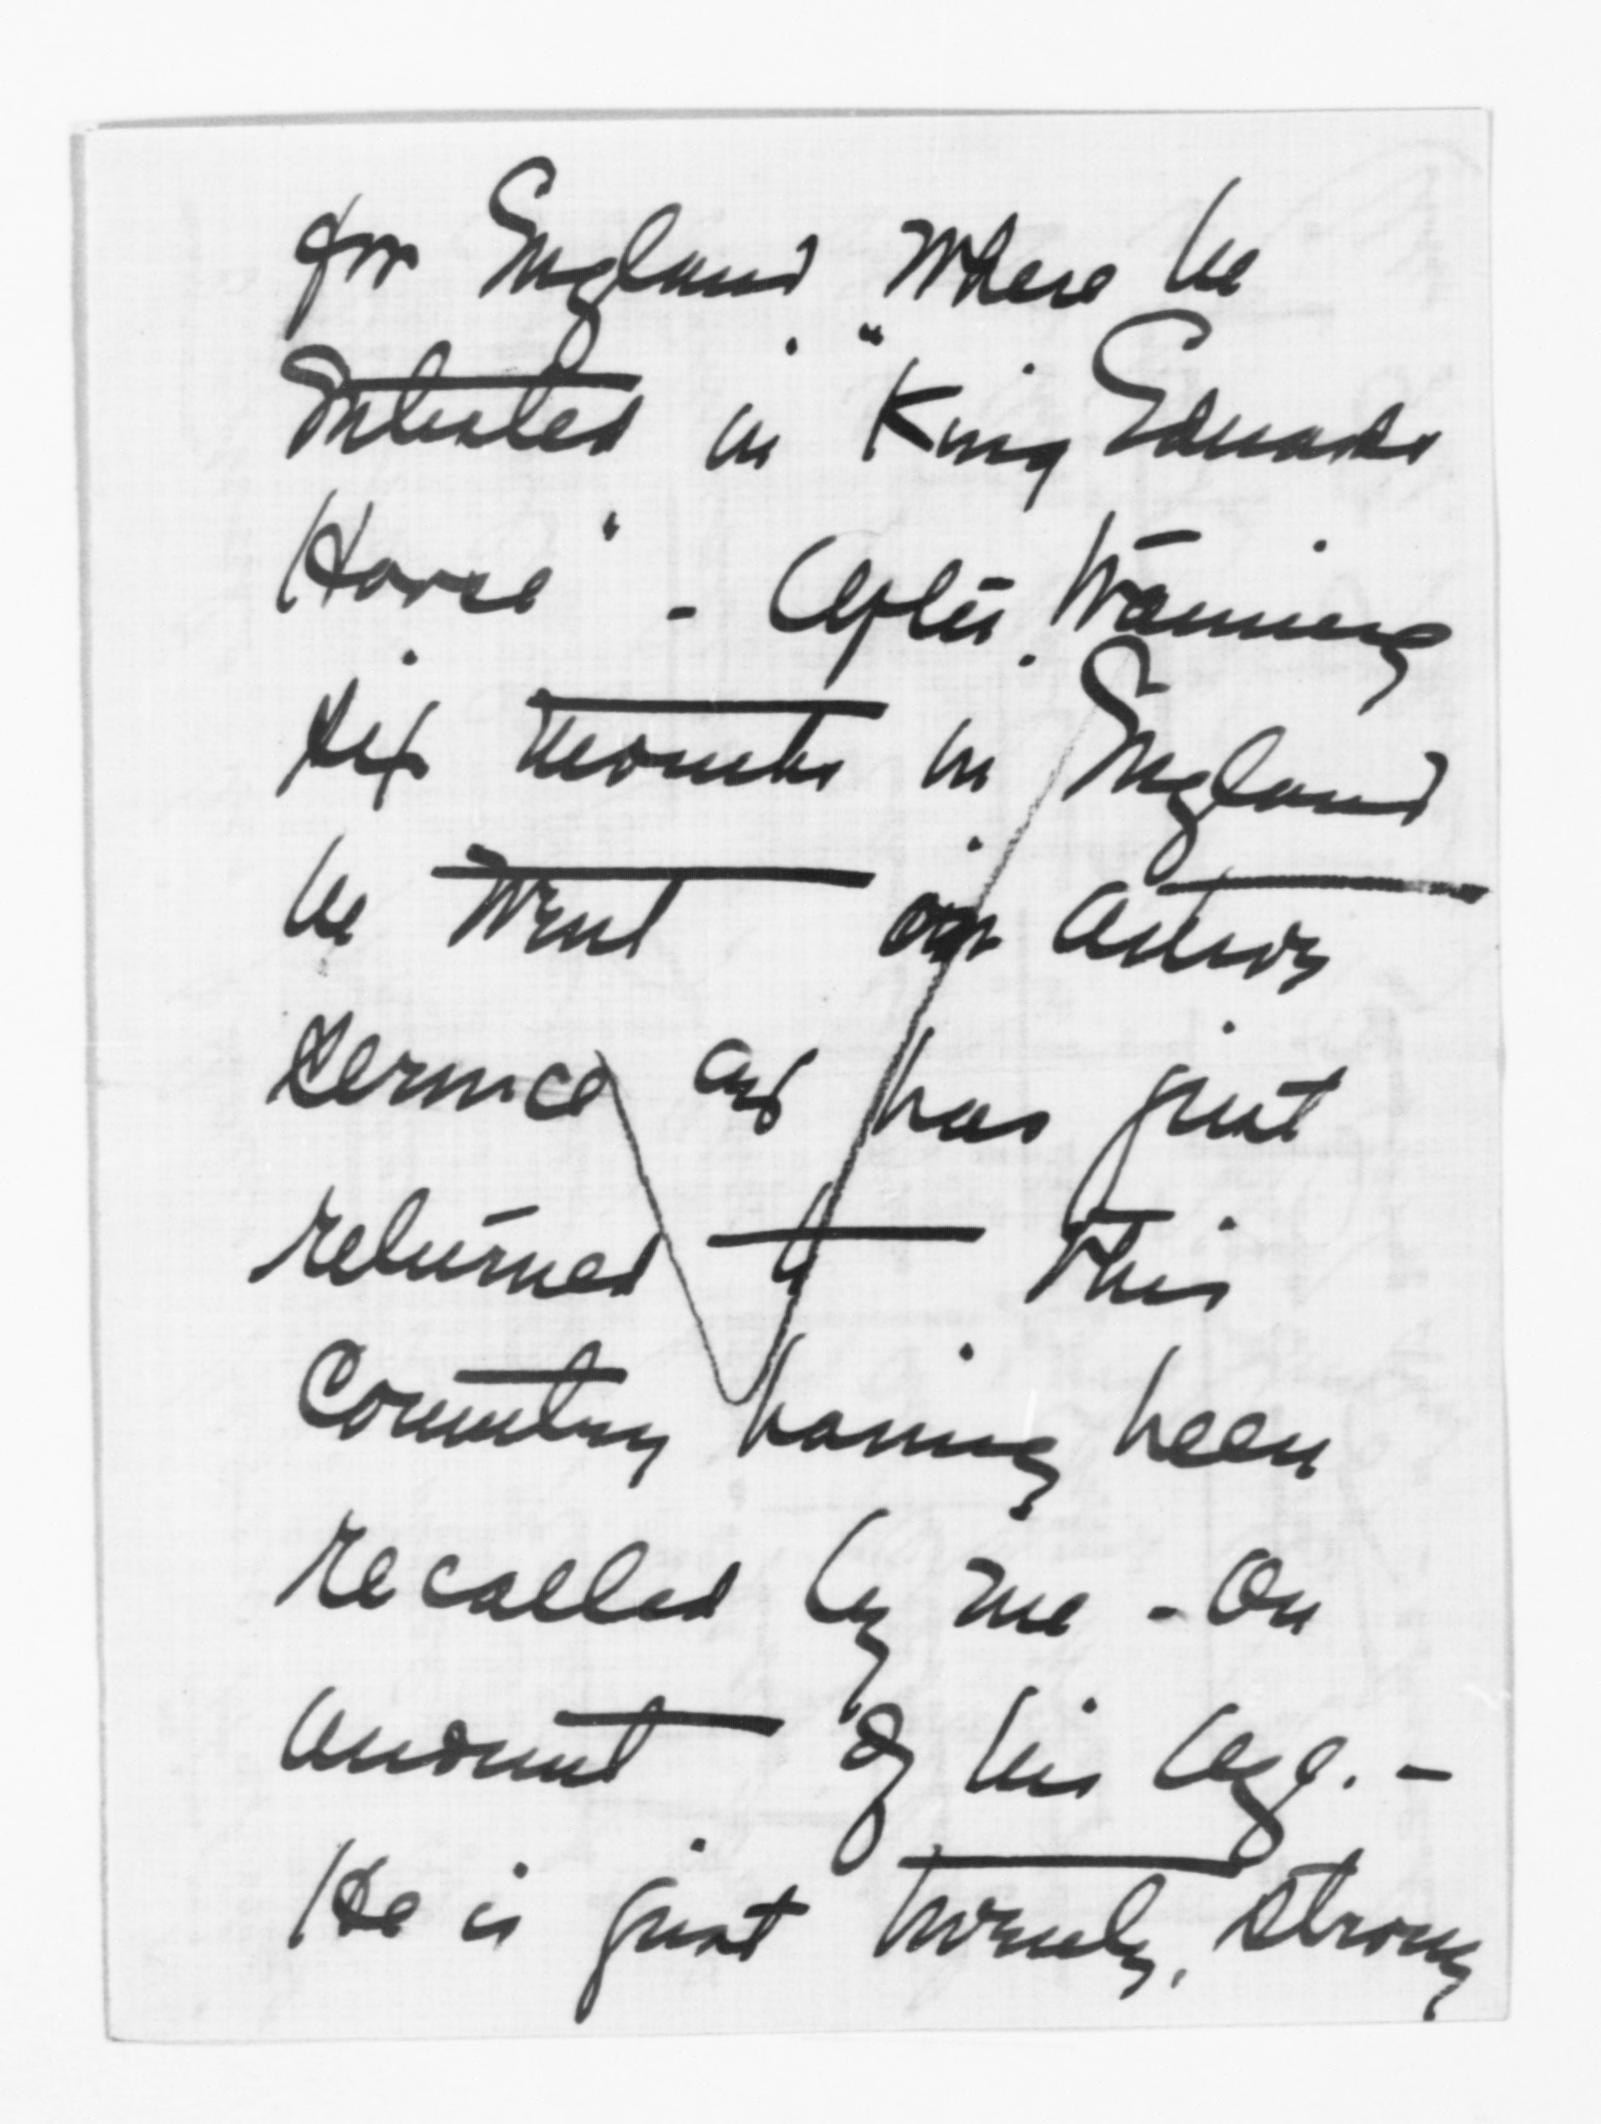 for England where he
Enlisted in "King Edwards
Horse" - After training
six months in England
he went on active
service and has just
returned to this
Country having been
recalled by me - on
account of his age. -
He is just twenty, strong